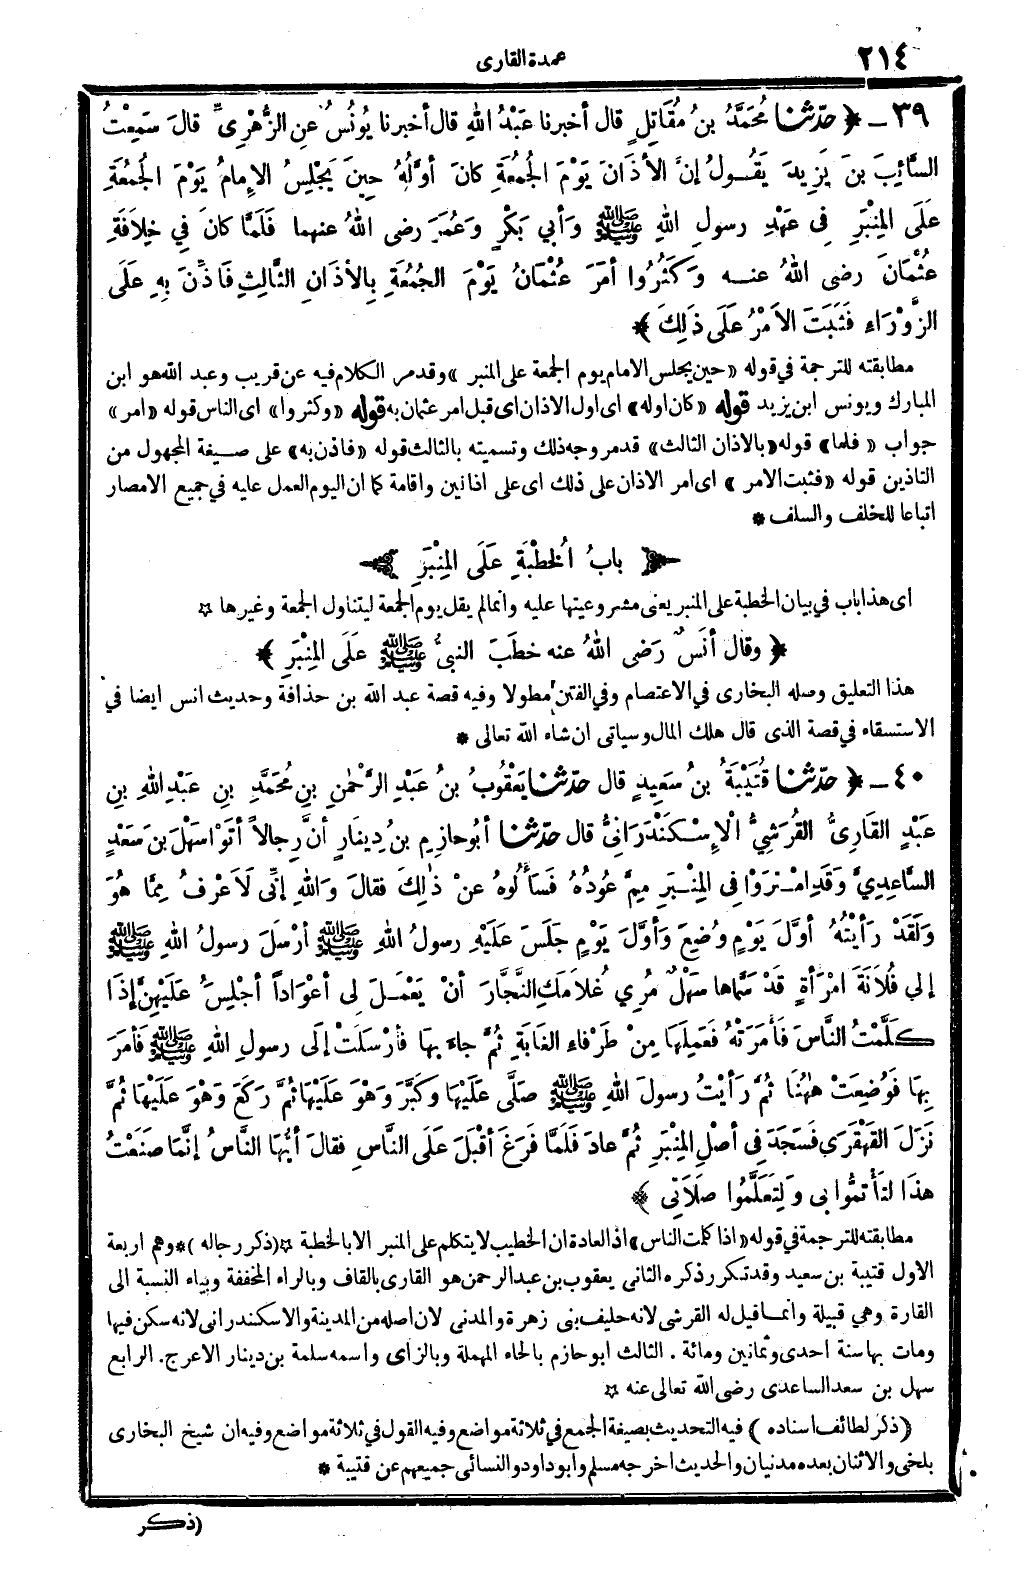 ٢١٤
عمدة القارى
٣٩ ـ ﴿ حدّثنا مُحَمَّدُ بنُ مُقَاتِلٍ قال أخبرنا عَبْدُ اللهِ قال أخبرنا يُونُسُ عنِ الزُّهْرِىِّ قالَ سَمِعْتُ
السَّائِبَ بنَ يَزِيدَ يَقُولُ إنَّ الأذَانَ يَوْمَ الجُمعَةِ كانَ أوَّلُهُ حِينَ يَجْلِسُ الإمامُ يَوْمَ الجُمعَةِ
عَلَى المِنْبَرِ فى عَهْدِ رسولِ اللهِ ﷺ وَأبي بَكْرٍ وَعُمَرَ رضى اللهُ عنهما فَلَمَّا كانَ في خِلاَفَةِ
عُثْمَانَ رضى اللهُ عنه وَكَثُرُوا أمَرَ عثْمَانُ يَوْمَ الجُمُعَةِ بِالأذَانِ الثَّالِثِ فَاذِّنَ بِهِ عَلَى
الزَّوْرَاءِ فَثَبَتَ الأمْرُ عَلَى ذَلِكَ ﴾
مطابقته للترجمة في قوله «حين يجلس الامام يوم الجمعة على المنبر» وقد مر الكلام فيه عن قريب وعبد الله هو ابن
المبارك ويونس ابن يزيد قوله «كان اوله» اى اول الاذان اى قبل امر عثمان به قوله «وكثروا» اى الناس قوله «امر»
جواب «فلما» قوله «بالاذان الثالث» قد مر وجه ذلك وتسميته بالثالث قوله «فاذن به» على صيغة المجهول من
التاذين قوله «فثبت الامر» اى امر الاذان على ذلك اى على اذانين واقامة كما ان اليوم العمل عليه في جميع الامصار
اتباعا للخلف والسلف *
﴿ بابُ الخطْبَةِ عَلَى المِنْبَرِ ﴾
اى هذا باب في بيان الخطبة على المنبر يعنى مشروعيتها عليه وانما لم يقل يوم الجمعة ليتناول الجمعة وغيرها ☆
﴿ وقال أنَسٌ رَضى اللهُ عنه خطَبَ النبىُّ ﷺ عَلَى المِنْبَرِ ﴾
هذا التعليق وصله البخارى في الاعتصام وفي الفتن مطولا وفيه قصة عبد الله بن حذافة وحديث انس ايضا في
الاستسقاء في قصة الذى قال هلك المال وسياتى ان شاء الله تعالى *
٤٠ ـ ﴿ حدّثنا قُتَيْبَةُ بنُ سَعِيدٍ قال حدّثنا يَعْقُوبُ بنُ عَبْدِ الرَّحْمٰنِ بنِ مُحَمَّدِ بنِ عَبْدِ اللهِ بنِ
عَبْدٍ القَارِىُّ القُرَشِىُّ الْإِسْكَنْدَرَانِىُّ قال حدّثنا أبو حازِمِ بنُ دِينَارٍ أنَّ رِجالاً أتَوْا سَهْلَ بنَ سَعْدٍ
السَّاعِدِىَّ وَقَدِ امْتَرَوْا فى المِنْبَرِ مِمَّ عُودُهُ فَسَألُوهُ عنْ ذَالِكَ فقالَ وَاللهِ إنِّى لَاَعْرِفُ مِمَّا هُوَ
وَلَقَدْ رَأيْتُهُ أوَّلَ يَوْمٍ وُضِعَ وَأوَّلَ يَوْمٍ جَلَسَ عَلَيْهِ رسولُ اللهِ ﷺ أرْسَلَ رسولُ اللهِ ﷺ
إلى فُلَانَةَ امْرَأةٍ قَدْ سَمَّاها سَهْلٌ مُرِي غُلاَمَكِ النَّجَّارَ أنْ يَعْمَلَ لِى أعْوَاداً أجْلِسُ عَلَيْهِنَّ إذَا
كَلَّمْتُ النَّاسَ فَأمَرَتْهُ فَعَمِلَهَا مِنْ طَرْفاءِ الغَابَةِ ثُمَّ جاءَ بِهَا فَأرْسَلَتْ إلَى رسولِ اللهِ ﷺ فَأمَرَ
بِهَا فَوُضِعَتْ هٰهُنَا ثُمَّ رَأيْتُ رسولَ اللهِ ﷺ صَلَّى عَلَيْهَا وَكَبَّرَ وَهْوَ عَلَيْهَا ثُمَّ رَكَعَ وَهْوَ عَلَيْهَا ثُمَّ
نَزَلَ القَهْقَرَى فَسَجَدَ فِى أصْلِ المِنْبَرِ ثُمَّ عادَ فَلَمَّا فَرَغَ أقْبَلَ عَلَى النَّاسِ فقالَ أيُّهَا النَّاسُ إنَّمَا صَنَعْتُ
هذَا لتَأْتَمُّوا بِى وَلِتَعَلَّمُوا صَلَاتِى ﴾
مطابقته للترجمة في قوله «اذا كلمت الناس» اذ العادة ان الخطيب لا يتكلم على المنبر الا بالخطبة ☆ (ذكر رجاله) * وهم اربعة
الاول قتيبة بن سعيد وقد تكرر ذكره الثانى يعقوب بن عبد الرحمن هو القارى بالقاف وبالراء المخففة وبياء النسبة الى
القارة وهي قبيلة وانما قيل له القرشى لانه حليف بنى زهرة والمدنى لان اصله من المدينة والاسكندرانى لانه سكن فيها
ومات بها سنة احدى وثمانين ومائة . الثالث ابو حازم بالحاء المهملة وبالزاى واسمه سلمة بن دينار الاعرج. الرابع
سهل بن سعد الساعدى رضى الله تعالى عنه ☆
(ذكر لطائف اسناده) فيه التحديث بصيغة الجمع في ثلاثة مواضع وفيه القول في ثلاثة مواضع وفيه ان شيخ البخارى
بلخى والاثنان بعده مدنيان والحديث اخرجه مسلم وابو داود والنسائى جميعهم عن قتيبة *
(ذكر